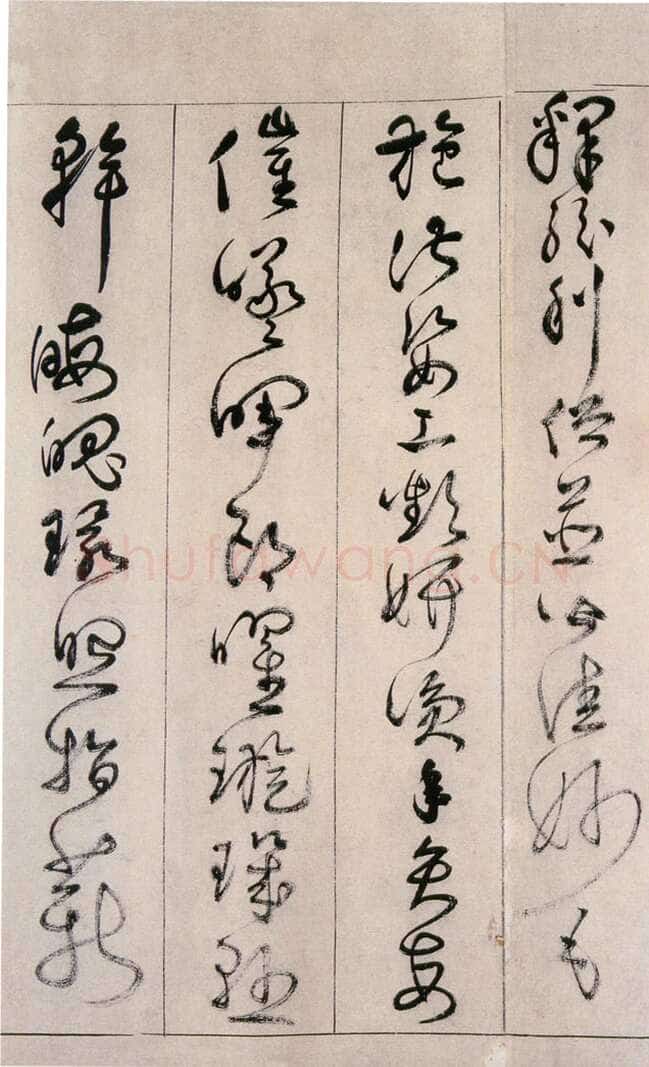 釋紛利俗並皆佳妙毛
施淑姿工顰妍笑年矢每
催曦暉朗曜璇璣懸
斡晦魄環照指薪
shufawang.CN